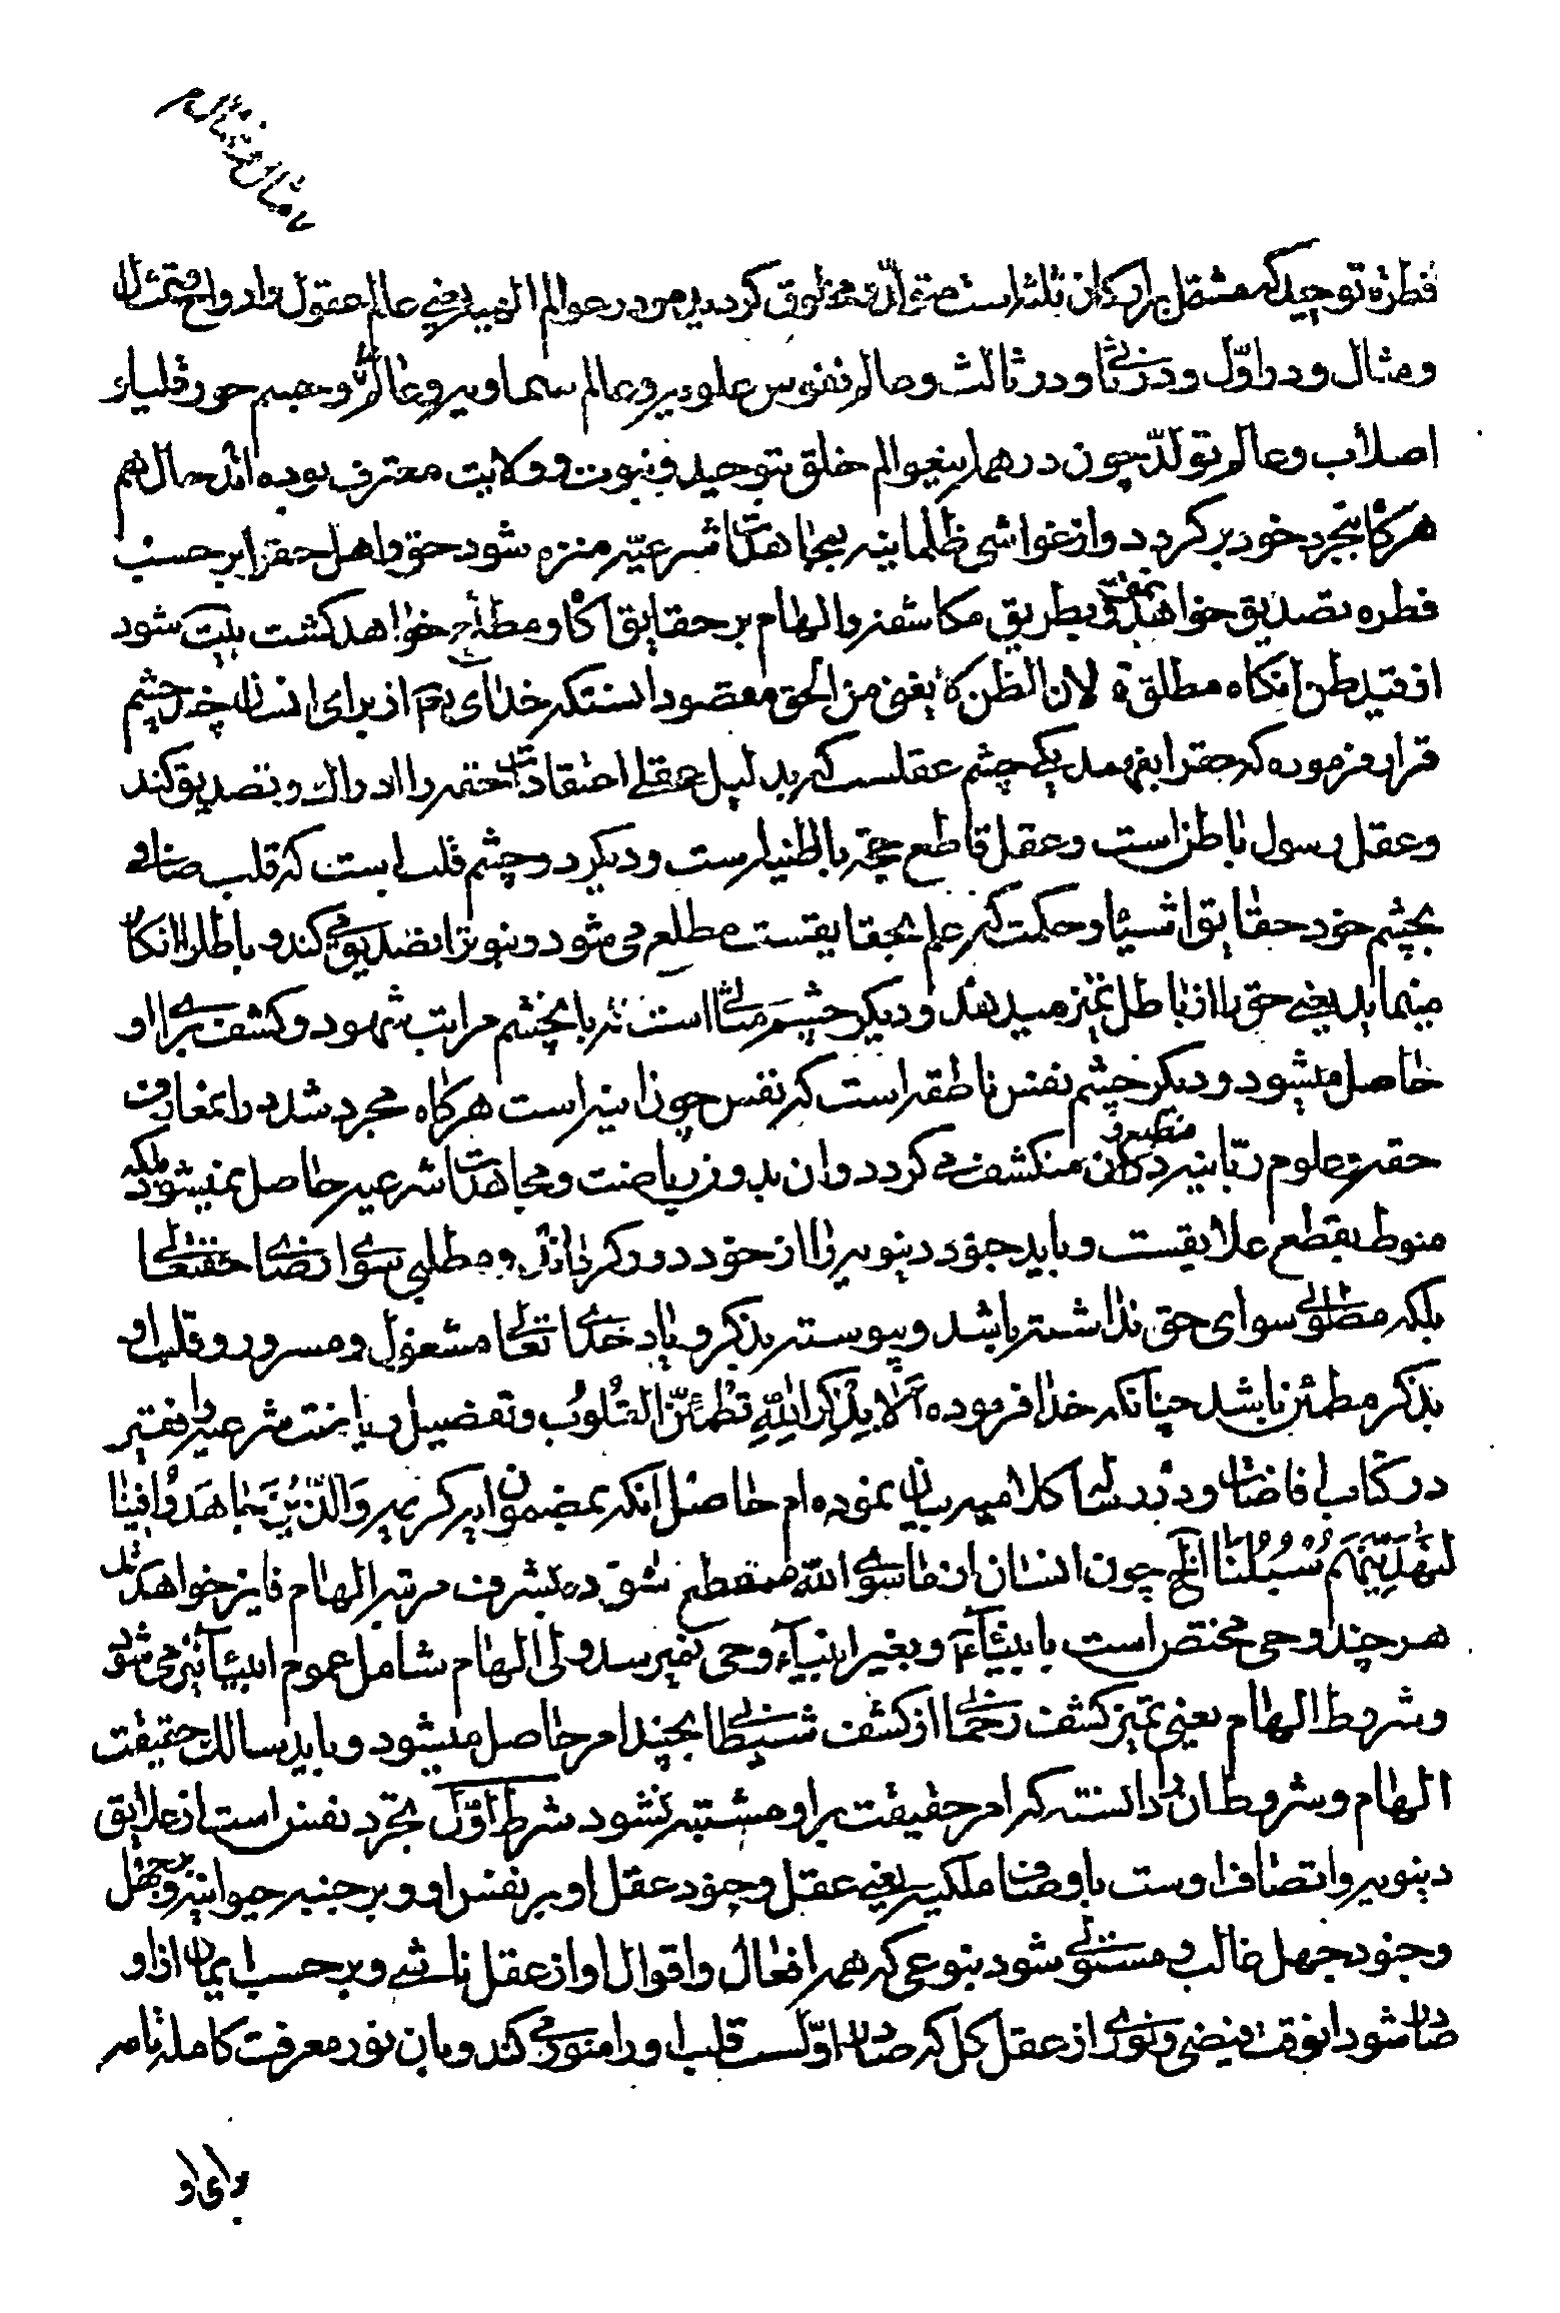 فطره توحید که مشتمل بر ارکان ثلثه است مخلوق گردیده در عوالم یعنی عالم عقول و ارواح
و مثال و در اوّل و در ثانی و در ثالث و عالم نفوس علویه و عالم سماویه و عالم و جسم
اصلاب و عالم تولد چون در همه اینعوالم خلق بتوحید و نبوت و ولایت معترف بوده اند حال هم
هرگاه بتجرد خود برگردد و از غواشی ظلمانیه بمجاهدات شرعیّه منزه شود حق و اهل حق را بر حسب
فطره تصدیق خواهد و بطریق مکاشفه و الهام بر حقایق آگاه و مطلع خواهد گشت شود
از قید ظن آنگاه مطلق لان الظن لا یغنی من الحق مقصود انستکه خدای از برای انسان چند چشم
قرار فرموده که حق را بفهمد یکی چشم عقلست که بدلیل عقلی اعتقادات حقه را ادراک و تصدیق کند
و عقل رسول باطن است و عقل قاطع حجة باطنیه است و دیگر دو چشم قلب است که قلب صافی
بچشم خود حقایق اشیا و حکمت که علم بحقایقست مطلع می شود و نبوت را تصدیق می کند و باطل را انکار
مینماید یعنی حق را از باطل تمیز میدهد و دیگر چشم مثالی است که با نچشم مراتب شهود و کشف برای او
حاصل میشود و دیگر چشم نفس ناطقه است که نفس چون اینه است هرگاه مجرد شد معارف
حقه و علوم ربّانیه در ان منطبع و منکشف می گردد و ان بدون ریاضت و مجاهدات شرعیه حاصل نمیشود بلکه
منوط بقطع علایقست و باید جنود دنیویه را از خود دور کرداند و مطلبی سوای رضای حقتعالی
بلکه مطلوبی سوای حق نداشته باشد و پیوسته بذکر و یاد خدای تعالی مشغول و مسرور و قلب او
بذکر مطمئن باشد چنانکه خدا فرموده اَلا بِذِکْرِ اللهِ تَطْمَئِنُّ الْقُلُوبُ و تفضیل ریاضت شرعیه را فقیر
در کتاب افاضات و در رساله کلامیه بیان نموده ام حاصل انکه بمضمون ایه کریمه وَالَّذینَ جاهَدُوا فینا
لَنَهْدِیَنَّهُمْ سُبُلَنا الخ چون انسان از ماسوی الله منقطع شود بشرف مرتبه الهام فایز خواهد شد
هر چند وحی مختص است بانبیآء و بغیر انبیآء وحی نمیرسد ولی الهام شامل عموم انبیآ نیز می شود
و شروط الهام یعنی تمیز کشف رحمانی از کشف شیطانی بچند امر حاصل میشود و باید سالک حقیقت
الهام و شروط ان را دانسته که امر حقیقت بر او مشتبه نشود شرط اوّل تجرد نفس است از علایق
دنیویه و اتصاف اوست باوصاف ملکیه یعنی عقل و جنود عقل او بر نفس او و بر جنبه حیوانیه و بر جهل
و جنود جهل غالب و مستولی شود بنوعی که همه افعال و اقوال او از عقل ناشی و بر حسب ایمان از او
صادر شود انوقت فیضی و نوری از عقل کل که صادر اوّلست قلب او را منور می کند و بان نور معرفت کامله تامه
برای او